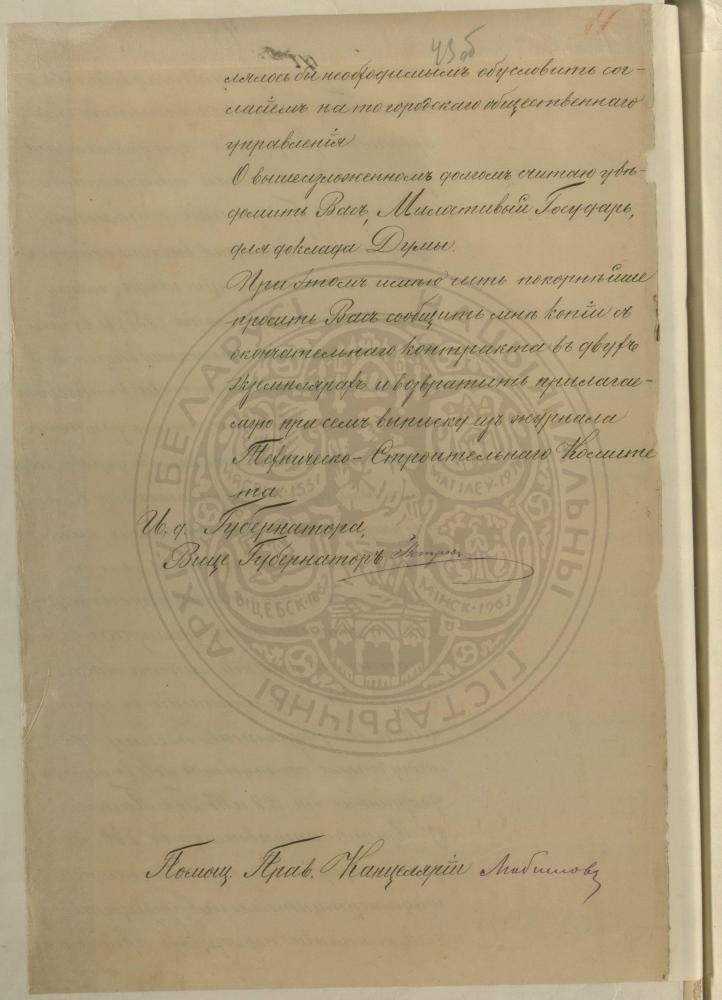 43об
лялось бы необходимымъ обусловить сог-
ласіемъ на то городскаго общественнаго
управленія
О вышеизложенномъ долгомъ считаю увѣ-
домить Васъ, Милостивый Государь,
для доклада Думы.
При этомъ имѣю честь покорнѣйше
просить Васъ сообщить мнѣ копіи съ
окончательнаго контракта въ двухъ
экземплярахъ и возвратить прилагае-
мую при семъ выписку изъ журнала
Техническо-Строительнаго Комите
та
И. д. Губернатора,
Вице Губернаторъ
Помощ. Прав. Канцеляріи Любимовъ
НАЦЫЯНАЛЬНЫ ГІСТАРЫЧНЫ АРХІЎ БЕЛАРУСІ
ВІЦЕБСК
МІНСК·1963